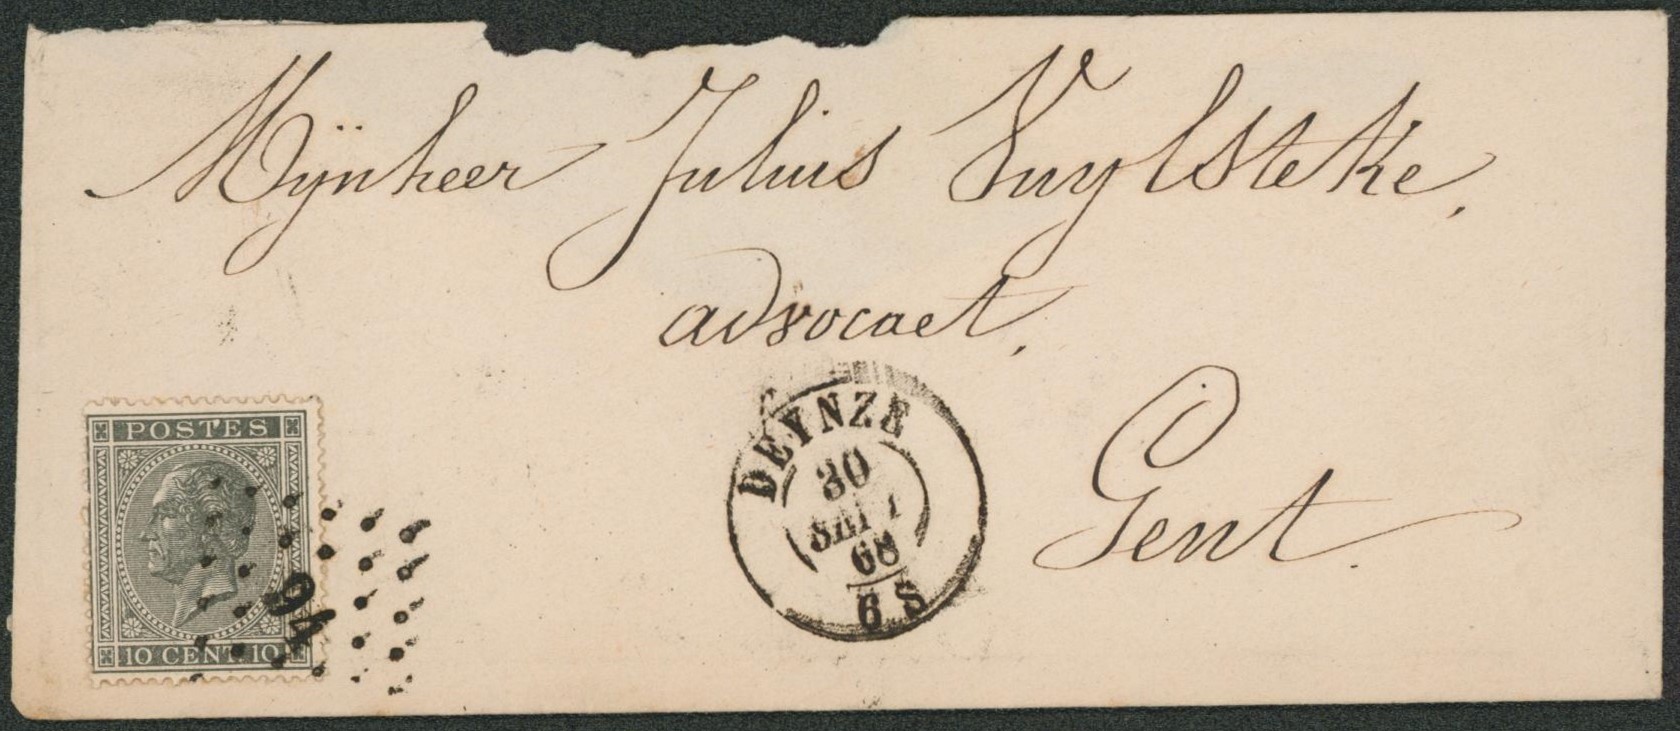 Mÿnheer Julius Vuylsteke,
advocaet,
Gent.
DEYNZE
30
SEPT
68
6 S
POSTES
94
10 CENT. 10